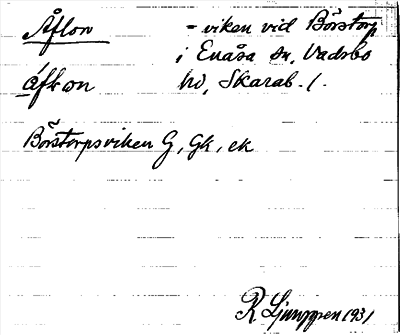 Åflon - viken vid Börstorp
i Enåsa sn, Vadsbo
åfløn hd, Skarab. l.
Börstorpsviken G, Gk, ek
R Ljunggren 1931